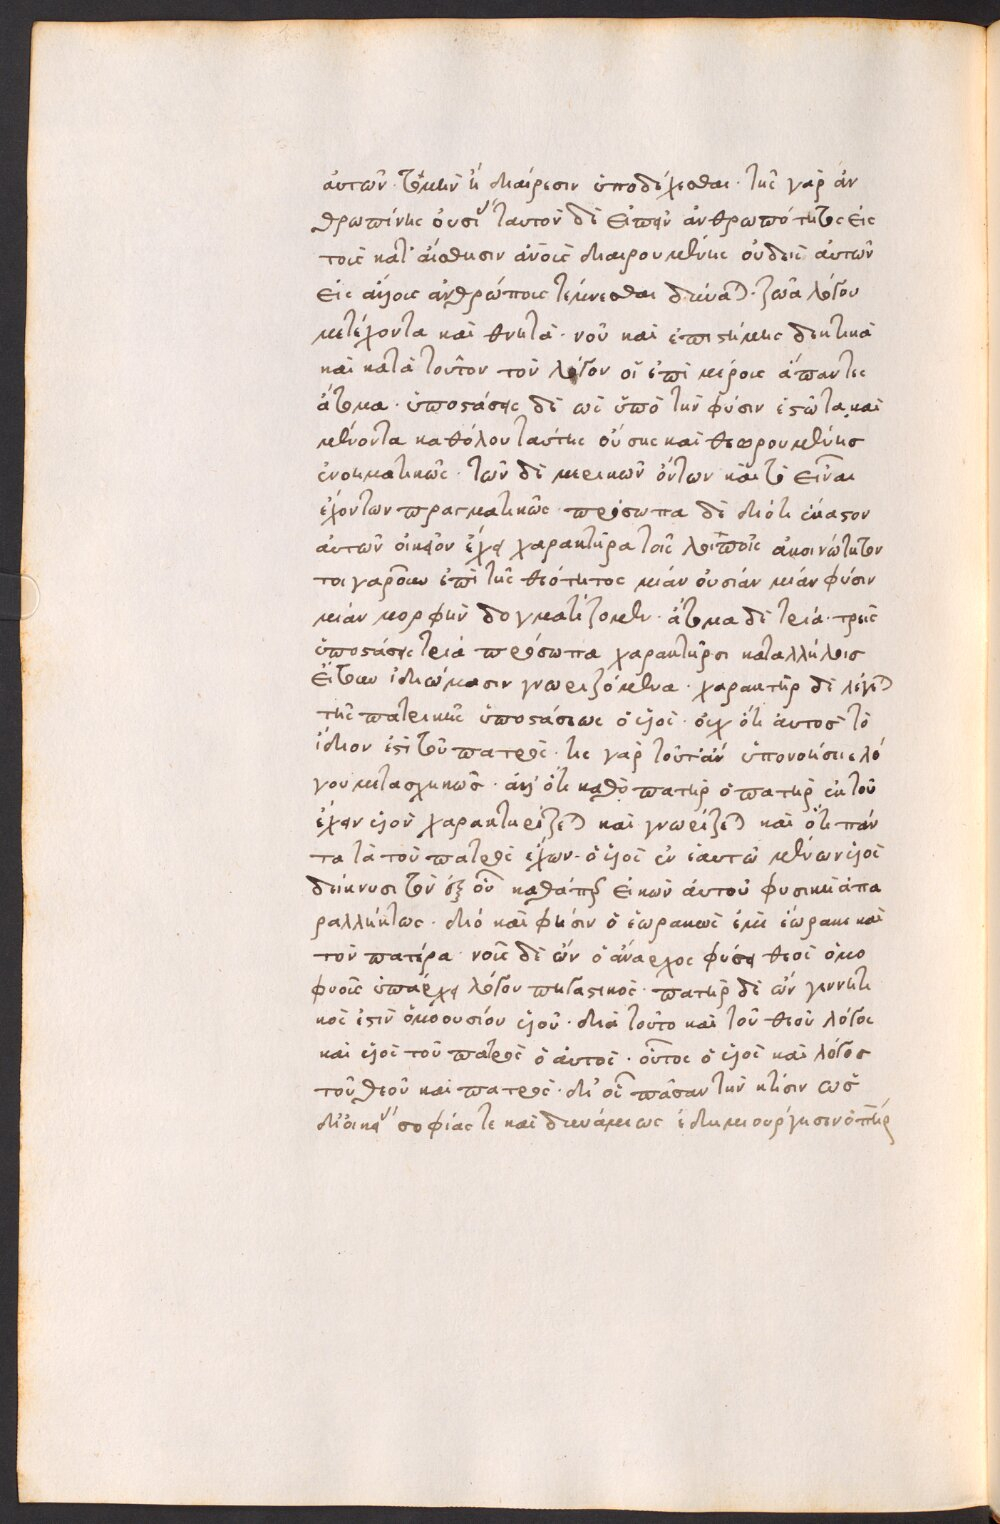 ἀυτῶν· τομὴν ἢ διαίρεσιν ὑποδέχεσθαι· τῆς γὰρ ἀν
θρωπίνης ὀυσίας ταυτὸν δὲ εἰπεῖν ἀνθρωπότητος εἰς
τοὺς κατ' αἴσθησιν ἀν̅ο̅υς διαιρουμένης οὐδεὶς ἀυτῶν
εἰς ἄλλους ἀνθρώπους τέμνεσθαι δύναται· ζῶα λόγου
μετέχοντα καὶ θνητά· νοῦ καὶ ἐπιστήμης δεκτικά
καὶ κατὰ τοῦτον τὸν λόγον οἱ ἐπὶ μέρους ἅπαντες
ἄτομα· ὑποστάσεις δὲ ὡς ὑπὸ τὴν φύσιν ἑστῶτα καὶ
μένοντα καθόλου ταύτης οὔσης καὶ θεωρουμένης
ἐνοηματικῶς· τῶν δὲ μερικῶν ὄντων καὶ τὸ εἶναι
ἐχόντων πραγματικῶς· πρόσωπα δὲ διότι ἕκαστον
ἀυτῶν οἰκεῖον ἔχει χαρακτῆρα τοῖς λοιποῖς ἀκοινώνητον
τοιγαροῦν ἐπὶ τῆς θεότητος μίαν ὀυσίαν μίαν φύσιν
μίαν μορφὴν δογματίζομεν· ἄτομα δὲ τρία· τρεῖς
ὑποστάσεις τρία πρόσωπα χαρακτῆρσι καταλλήλοις
εἴτουν ἰδιώμασιν γνωριζόμενα· χαρακτὴρ δὲ λέγεται
τῆς πατρικῆς ὑποστάσεως ὁ υἱὸς· ὀυχ ὅτι ἀυτὸς τὸ
ἴδιον ἐστὶ τοῦ πατρὸς· τίς γὰρ τοῦτ' ἂν ὑπονοήσειε λό
γου μετασχηκὼς· ἀλλ' ὅτι καθὸ πατὴρ ὁ πατὴρ ἐκ τοῦ
ἔχειν υἱὸν χαρακτηρίζεται καὶ γνωρίζεται καὶ ὅτι πάν
τα τὰ τοῦ πατρὸς ἔχων· ὁ υἱὸς ἐν ἑαυτῶ μένων υἱὸς
δείκνυσι τὸν ἐξ οὗ καθάπερ εἰκὼν ἀυτοῦ φυσικὴ ἀπα
ραλλήκτως· διό καὶ φησὶν ὁ ἑωρακὼς ἐμὲ ἑώρακε καὶ
τὸν πατέρα· νοῦς δὲ ὢν ὁ ἄναρχος φύσει θεὸς ὁμο
φυοῦς ὑπάρχει λόγου πηγαστικὸς· πατὴρ δὲ ὢν γεννητι
κός ἐστὶν ὁμοουσίου υἱοῦ· διὰ τοῦτο καὶ τοῦ θεοῦ λόγος
καὶ υἱὸς τοῦ πατρὸς ὁ ἀυτὸς· οὗτος ὁ υἱὸς καὶ λόγος
τοῦ θεοῦ καὶ πατρὸς· δι' οὗ πᾶσαν τὴν κτίσιν ὡς
δι' οἰκείας σοφίας τε καὶ δυνάμεως ἐδημιούργησεν ὁ π̅η̅ρ